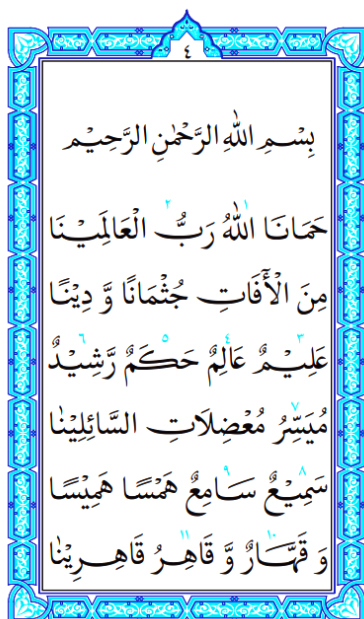 ٤
بِسْمِ اللّٰهِ الرَّحْمٰنِ الرَّحِيْمِ
حَمَانَا اللّٰهُ١ رَبُّ٢ الْعَالَمَيْنَا
مِنَ الْأَفَاتِ جُثْمَانًا وَّ دِيْنًا
عَلِيْمٌ٣ عَالِمٌ٤ حَكَمٌ٥ رَّشِيْدٌ٦
مُيَسِّرُ٧ مُعْضِلَاتِ السَّائِلِيْنَا
سَمِيْعٌ٨ سَامِعٌ٩ هَمْسًا هَمِيْسًا
وَ قَهَّارٌ١٠ وَّ قَاهِرُ١١ قَاهِرِيْنَا